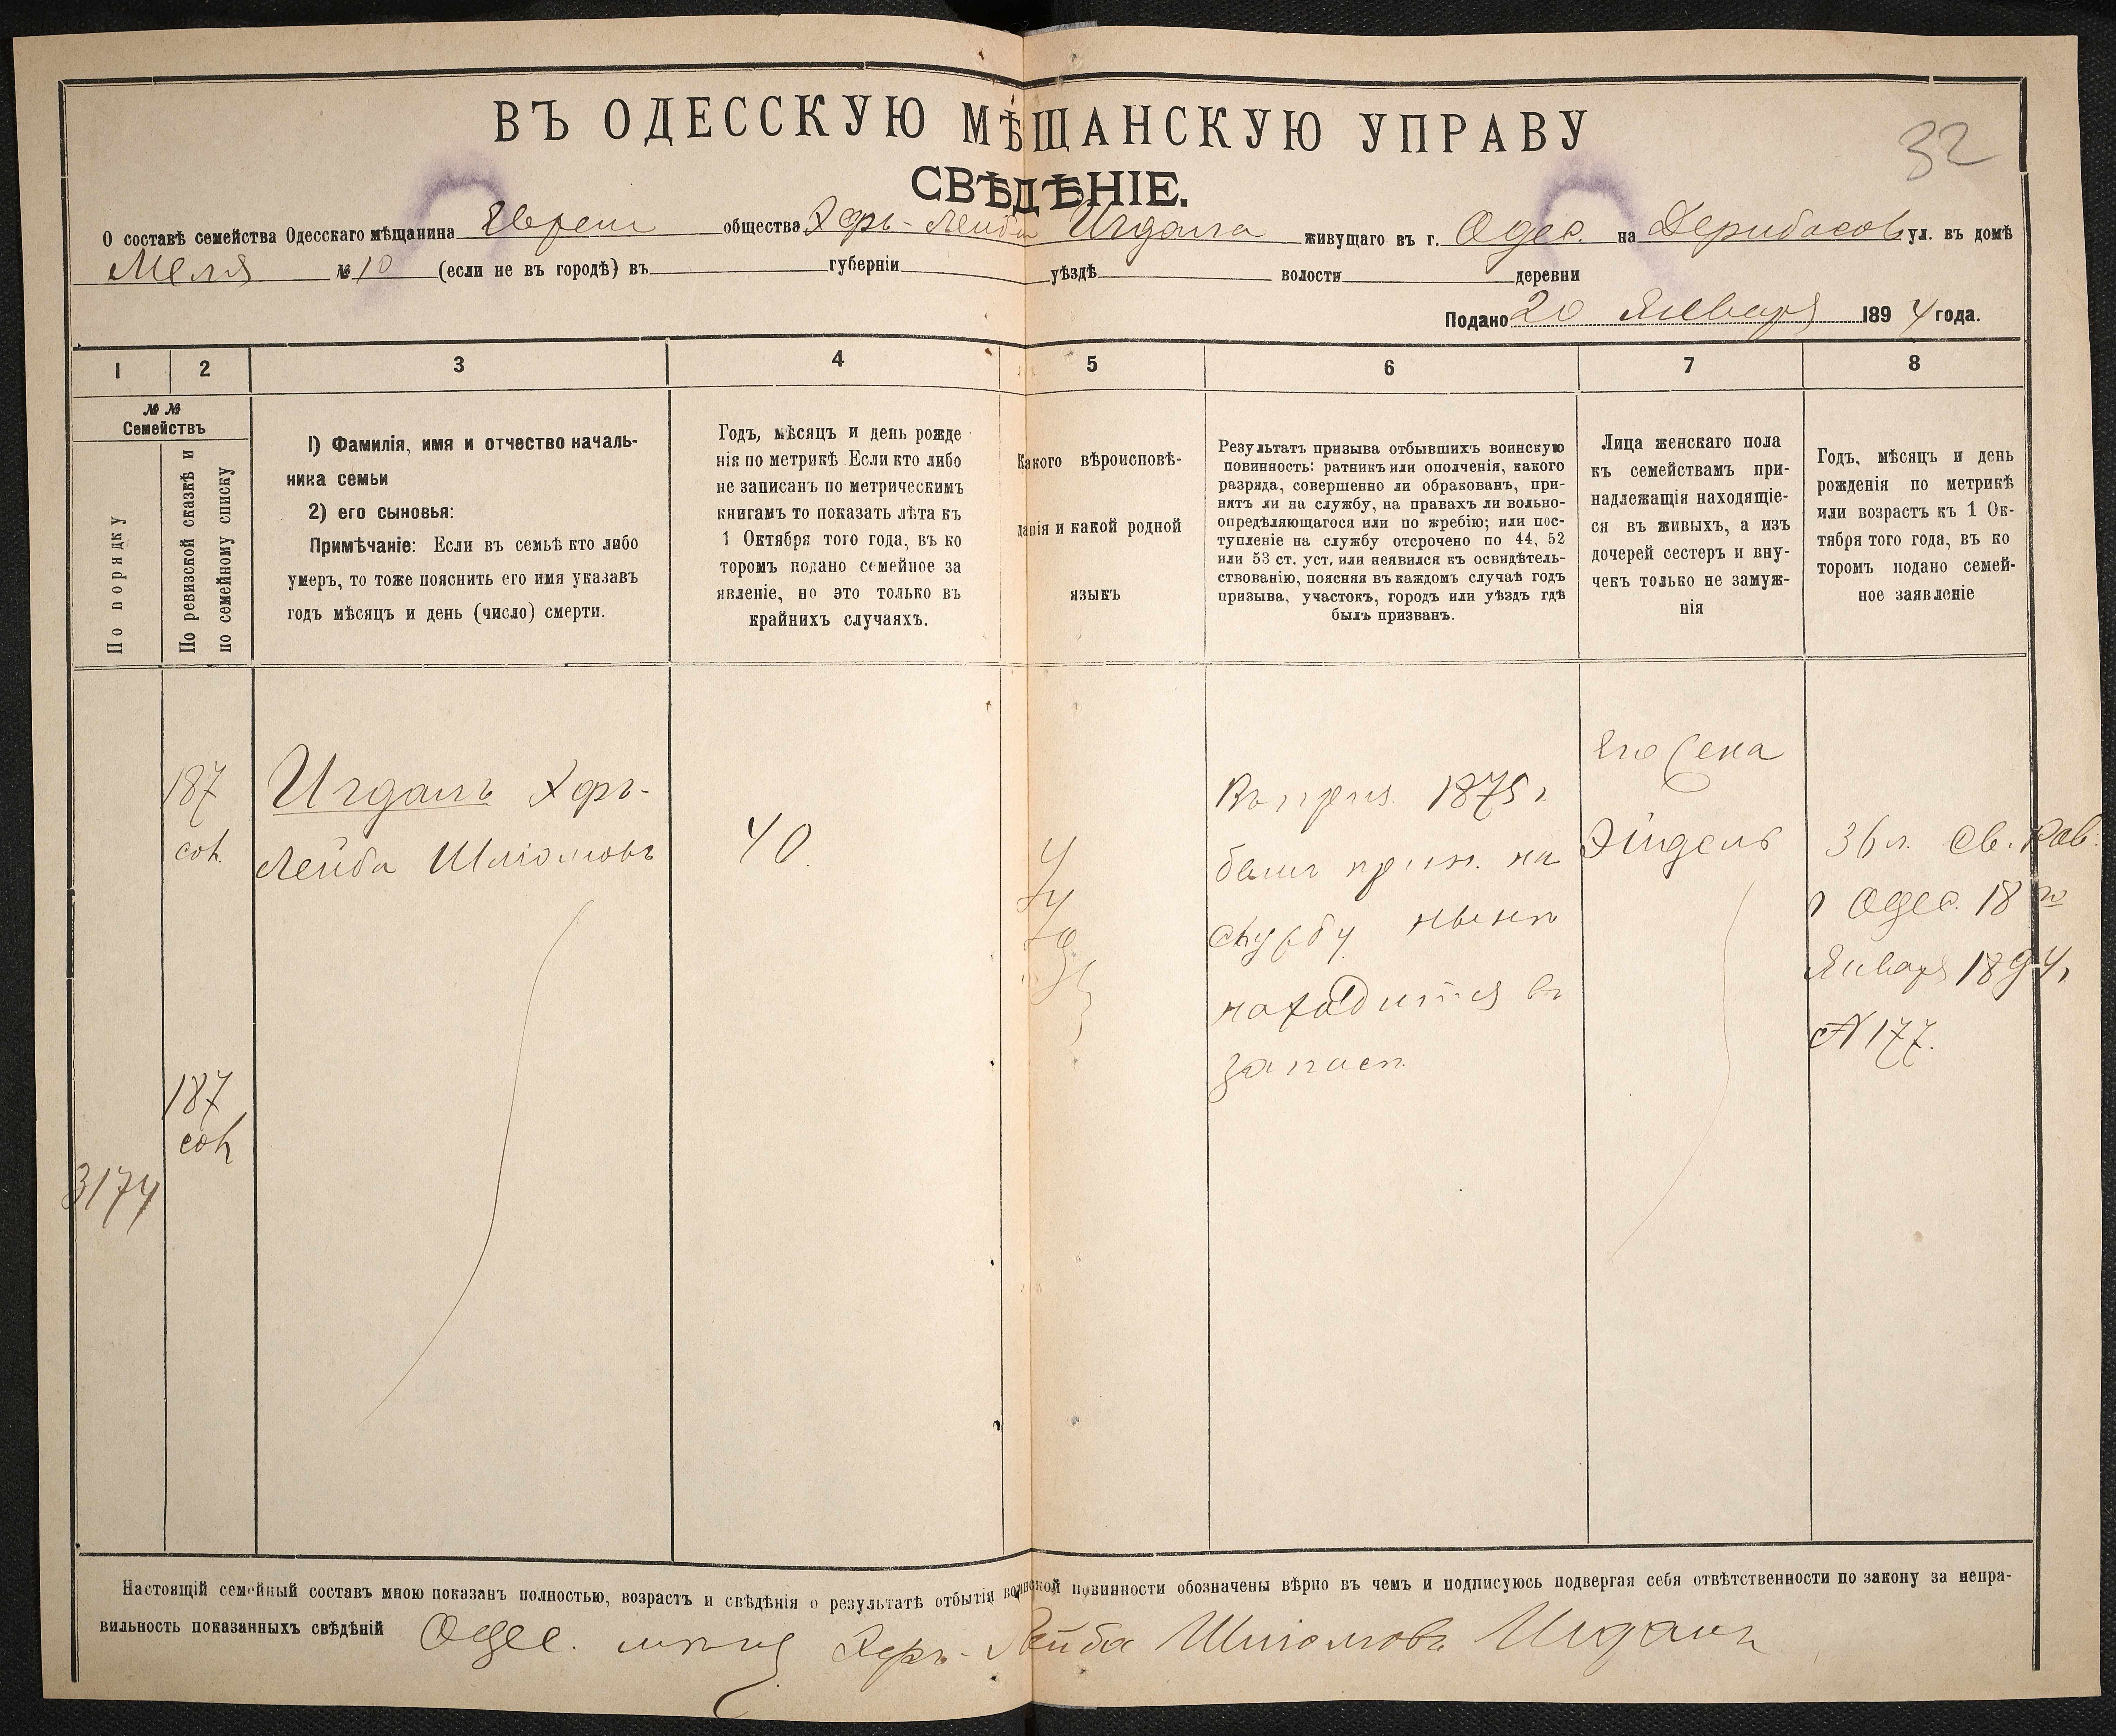 ВЪ ОДЕССКУЮ МѢЩАНСКУЮ УПРАВУ
32
СВѢДѢНІЕ.
О составѣ семейства Одесскаго мѣщанина Еврей общества Хфръ-Лейба Игдала живущаго въ г. Одес. на Дерибасов ул. въ домѣ
Меля № 10 (если не въ городѣ) въ губерніи уѣздѣ волости деревни
Подано 20 Января 1894 года.
1 2 3 4 5 6 7 8
№ №
Семействъ
По порядку
По ревизской сказкѣ и
по семейному списку
1) Фамилія, имя и отчество началь-
ника семьи
2) его сыновья:
Примѣчаніе: Если въ семьѣ кто либо
умеръ, то тоже пояснить его имя указавъ
годъ мѣсяцъ и день (число) смерти.
Годъ, мѣсяцъ и день рожде
нія по метрикѣ Если кто либо
не записанъ по метрическимъ
книгамъ то показать лѣта къ
1 Октября того года, въ ко
торомъ подано семейное за
явленіе, но это только въ
крайнихъ случаяхъ.
Какого вѣроисповѣ-
данія и какой родной
языкъ
Результатъ призыва отбывшихъ воинскую
повинность: ратникъ или ополченія, какого
разряда, совершенно ли обракованъ, при-
нятъ ли на службу, на правахъ ли вольно-
опредѣляющагося или по жребію; или пос-
тупленіе на службу отсрочено по 44, 52
или 53 ст. уст. или неявился къ освидѣтель-
ствованію, поясняя въ каждомъ случаѣ годъ
призыва, участокъ, городъ или уѣздъ гдѣ
былъ призванъ.
Лица женскаго пола
къ семействамъ при-
надлежащія находящіе-
ся въ живыхъ, а изъ
дочерей сестеръ и вну-
чекъ только не замуж-
нія
Годъ, мѣсяцъ и день
рожденія по метрикѣ
или возрастъ къ 1 Ок-
тября того года, въ ко
торомъ подано семей-
ное заявленіе
187
Игдалъ Хфръ-
Лейба Шліомовъ
40
Въ приз. 1875 г
былъ прин. на
службу нынѣ
находится въ
запасѣ
Его жена
Эйдель
36 л. Св. Рав.
г Одес. 18 го
Января 1894 г
№ 177.
187
3174
Настоящій семейный составъ мною показанъ полностью, возрастъ и свѣдѣнія о результатѣ отбытія воинской повинности обозначены вѣрно въ чемъ и подписуюсь подвергая себя отвѣтственности по закону за непра-
вильность показанныхъ свѣдѣній Одес. мѣщ Хфръ-Лейба Шліомовъ Игдалъ